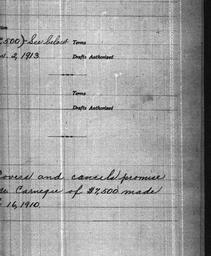 500) See below Terms
2, 1913. Drafts Authorized
Terms
Drafts Authorized
covers and cancels promise
Carnegie of $7,500 made
16, 1910.